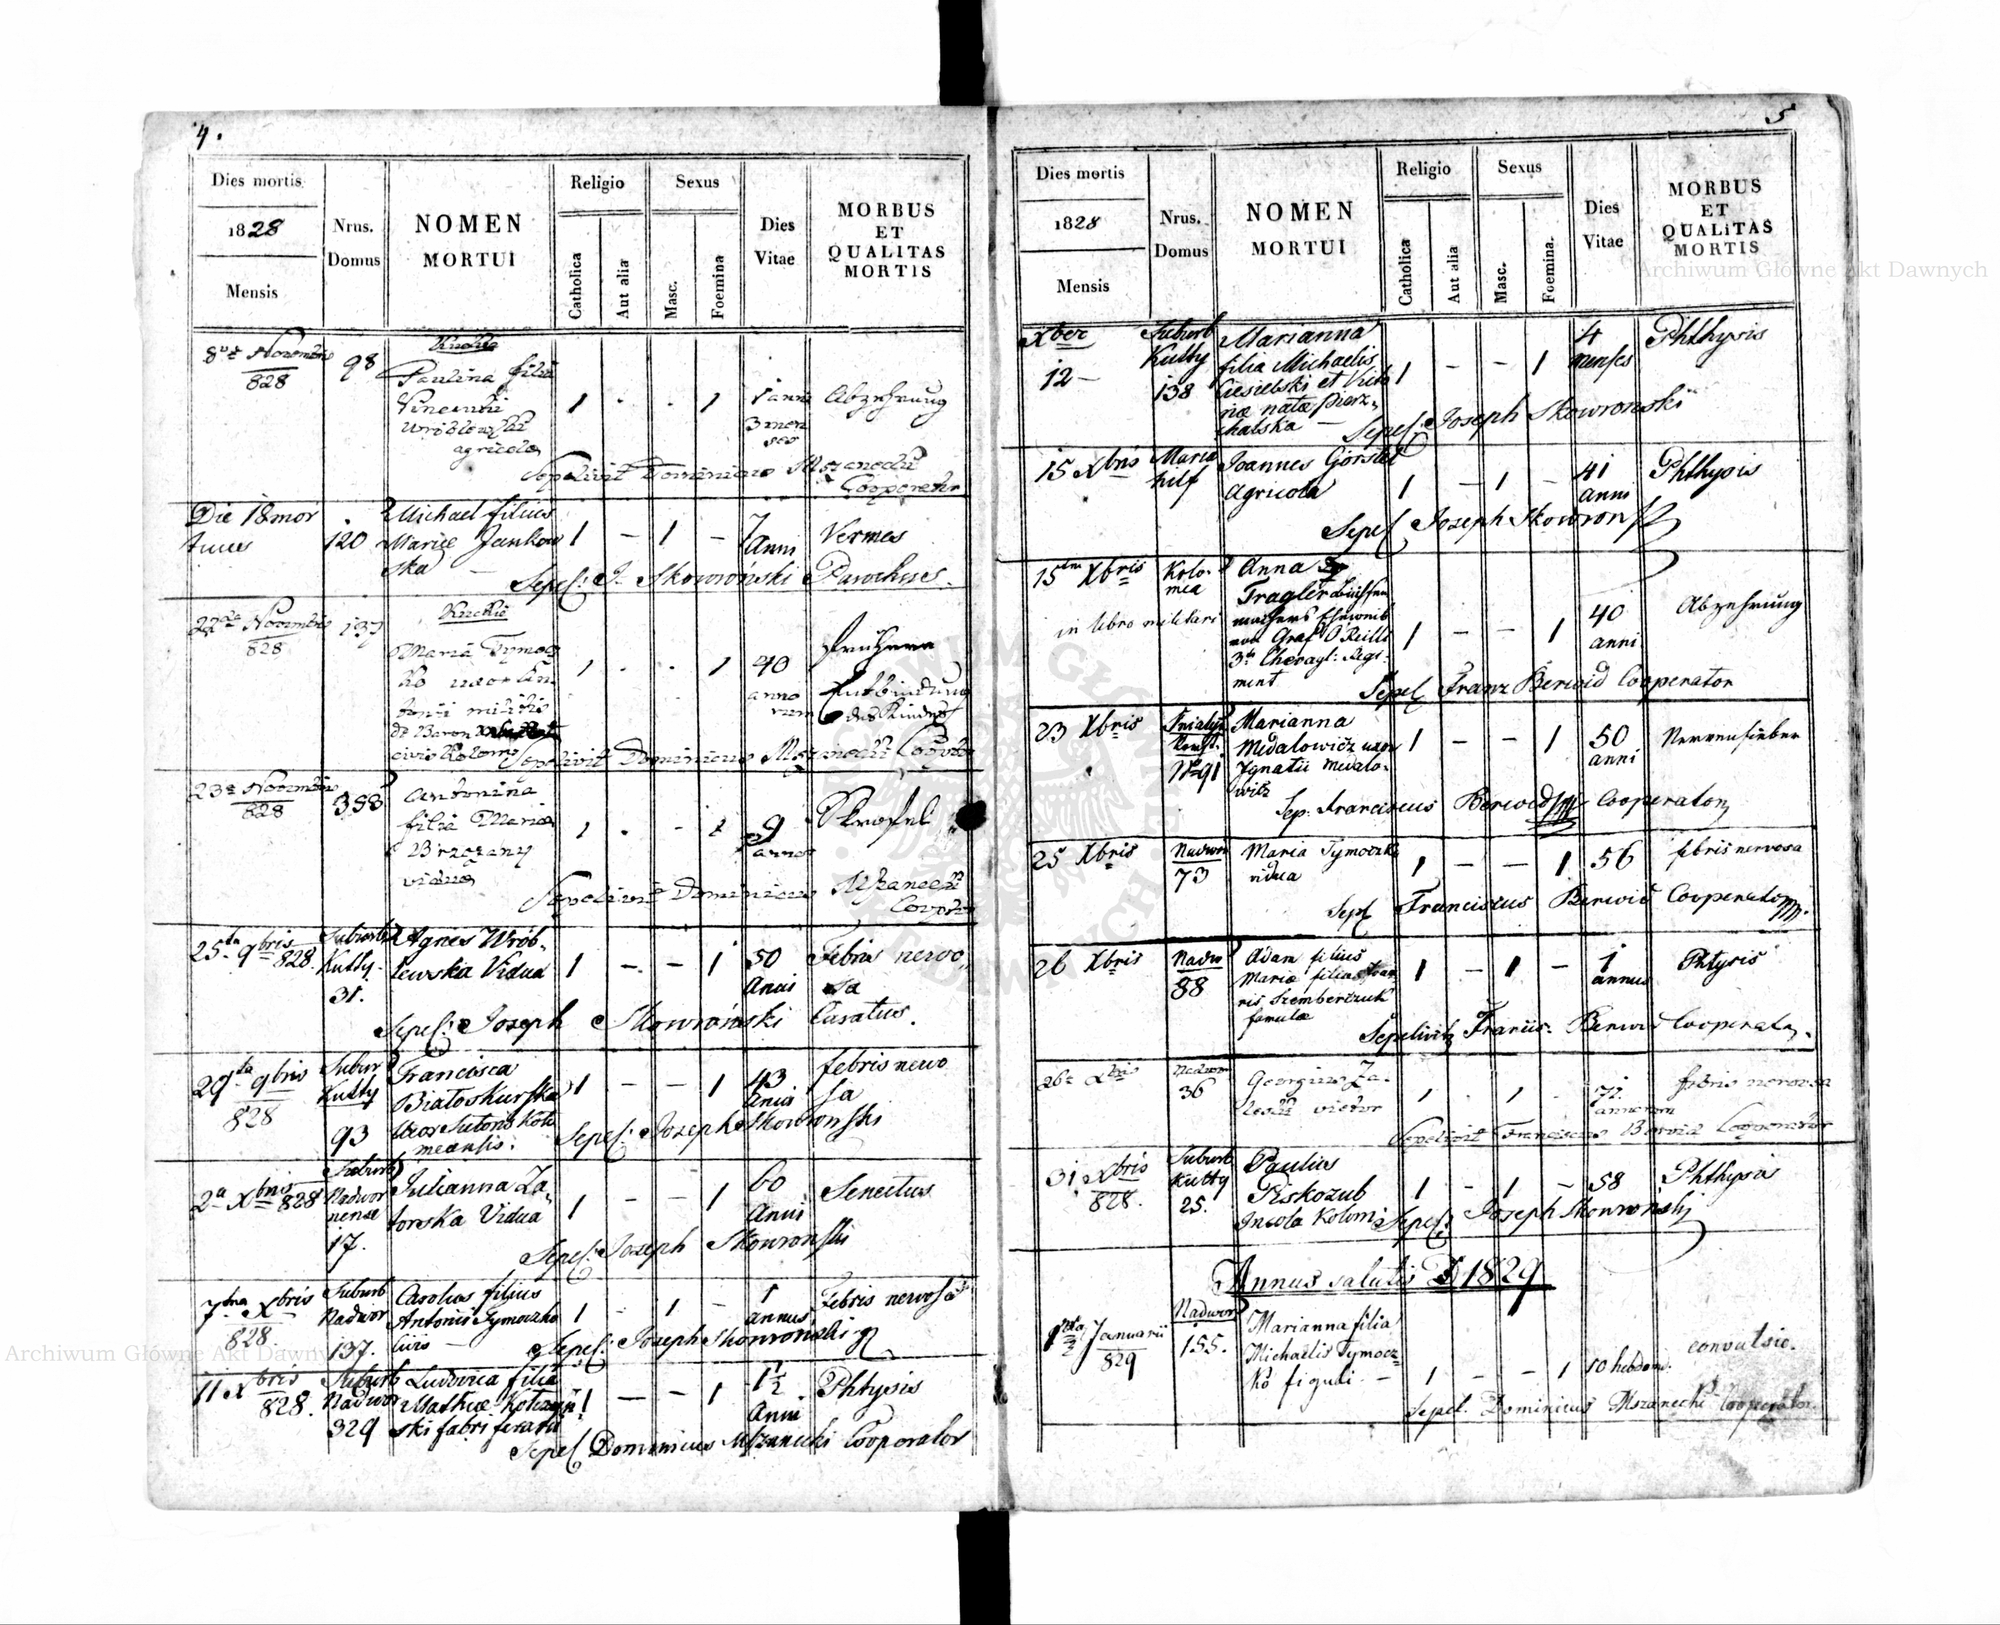 4.
Dies mortis
1828
Mensis
Nrus.
Domus
NOMEN
MORTUI
Religio
Catholica
Aut alia
Sexus
Masc.
Foemina
Dies
Vitae
MORBUS
ET
QUALITAS
MORTIS
8va Novembris
828
98
Paulina filia
Vincentii
Wróblewski
agricola
1 . . 1
1 anni
3 men
ses
Abzehrung
Sepelivit Dominicus
Cooperator
Die 18 mor
tuus
120
Michael filius
Mariae Jankow
ska
1 – 1 –
7
Anni
Vermes
Sepel: J. Skowroński Parochus.
22da Novembris
828
137
Maria Tymocz
ko uxor An
tonii
de Baron
civis Kolom
1 . . 1
40
anno
rum
Entbindung
des Kindes
Sepelivit Dominicus
23a Novembris
828
388
Antonina
filia Maria
Brzezany
vidua
1 . - 1
9
annor
Skrofel
Sepelivit Dominicus
25ta 9bris 828.
Suburb
Kutty.
31.
Agnes Wrób-
lewska Vidua
1 – – 1
50
Anni
Febris nervo
sa
Sepel: Joseph Skowroński Curatus.
29ta 9bris
828
Subur
Kutty
93
Francisca
Białoskurska
Uxor Sutoris Kolo
meansis.
1 – – 1
43
Anni
febris nervo
sa
Sepel: Joseph Skowronski
2a Xbris 828
Suburb
Nadwor
nense
17.
Julianna Za-
torska Vidua
1 – – 1
60
Anni
Senectus
Sepel: Joseph Skowronski
7tma Xbris
828
Suburb
Nadwor
137.
Carolus filius
Antonii Tymoczko
1 – 1 –
1
annus
Febris nervosa
Sepel: Joseph Skowronski
11 Xbris
828.
Suburb
Nadwor
329
Ludovica filia
ski fabri ferarii
1 – – 1
1 1/2
Anni
Phtysis
Sepel Dominicus Mszanecki Cooperator
5
Dies mortis
1828
Mensis
Nrus.
Domus
NOMEN
MORTUI
Religio
Catholica
Aut alia
Sexus
Masc.
Foemina.
Dies
Vitae
MORBUS
ET
QUALITAS
MORTIS
Xber
12 –
Suburb
Kutty
138
Marianna
filia Michaelis
Ciesielski et Victo
riae natae Pierz-
chalska –
1 – – 1
4
menses
Phthysis
Sepel: Joseph Skowronski
15 Xbris
Maria
hilf
Joannes Gorstel
Agricola
1 – 1 –
41
anni
Phthysis
Sepel Joseph Skowronski
15ta Xbris
in libro militari
Kolo-
mea
Anna
Tragler Büchsen
machers Eheweib
von Graf O Reilli
3ten Chevagl: Regi-
ment
1 – – 1
40
anni
Abzehrung
Sepel Franz Berwid Cooperator
23 Xbris
Nro 91
Marianna
Medalowicz uxor
Ignatii Medalo-
wicz
1 – – 1
50
anni
Nervenfieber
Sep. Franciscus Berwid Cooperator
25 Xbris
Nadwor
73
Maria Tymoczko
vidua
1 – – 1
56
febris nervosa
Sepl Franciscus Berwid Cooperator
26 Xbris
Nadw
88
Adam filius
Maria filia Joan
nis Szemberczuk
famulae
1 – 1 –
1
annus
Phtysis
Sepelivit Francis: Berwid Cooperator.
26a Xbris
Nadwor
36
Georgius Za-
1 . 1 .
72.
annorum
febris nervosa
Sepelivit Franciscus Berwid Cooperator
31 Xbris
828.
Suburb
Kutty
25.
Paulus
Piskozub
Incola Kolom:
1 – 1 –
58
Phthysis
Sepel: Joseph Skowronski
Annus salutis D 1829
1ma Januarii
829
Nadwor
155.
Marianna filia
Michaelis Tymocz-
ko figuli. –
1 – – 1
10 hebdom.
convulsio.
Sepel. Dominicus Mszanecki Cooperator.
Archiwum Główne Akt Dawnych
Archiwum Główne Akt Dawnych
ARCHIWUM GŁÓWNE AKT DAWNYCH